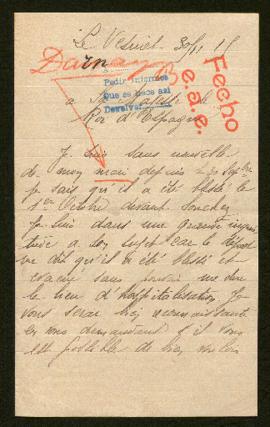 Le Vésinet. 30/11 15
Darnay B
Fecho
e.a.e.
Pedir informes
Que se hace así
Devolver
à Sa Majesté le
Roi d'Espagne
Je suis sans nouvelle
de mon mari depuis
Je sais qu'il a été blessé le
1er Octobre devant Souchez
Je suis dans une grande inquié
tude a son sujet car le
me dit qu'il a été blessé et
évacué sans pouvoir me dire
le lieu d'hospitalisation Je
vous serai bien reconnaissante
en vous demandant s'il vous
est possible de bien vouloir